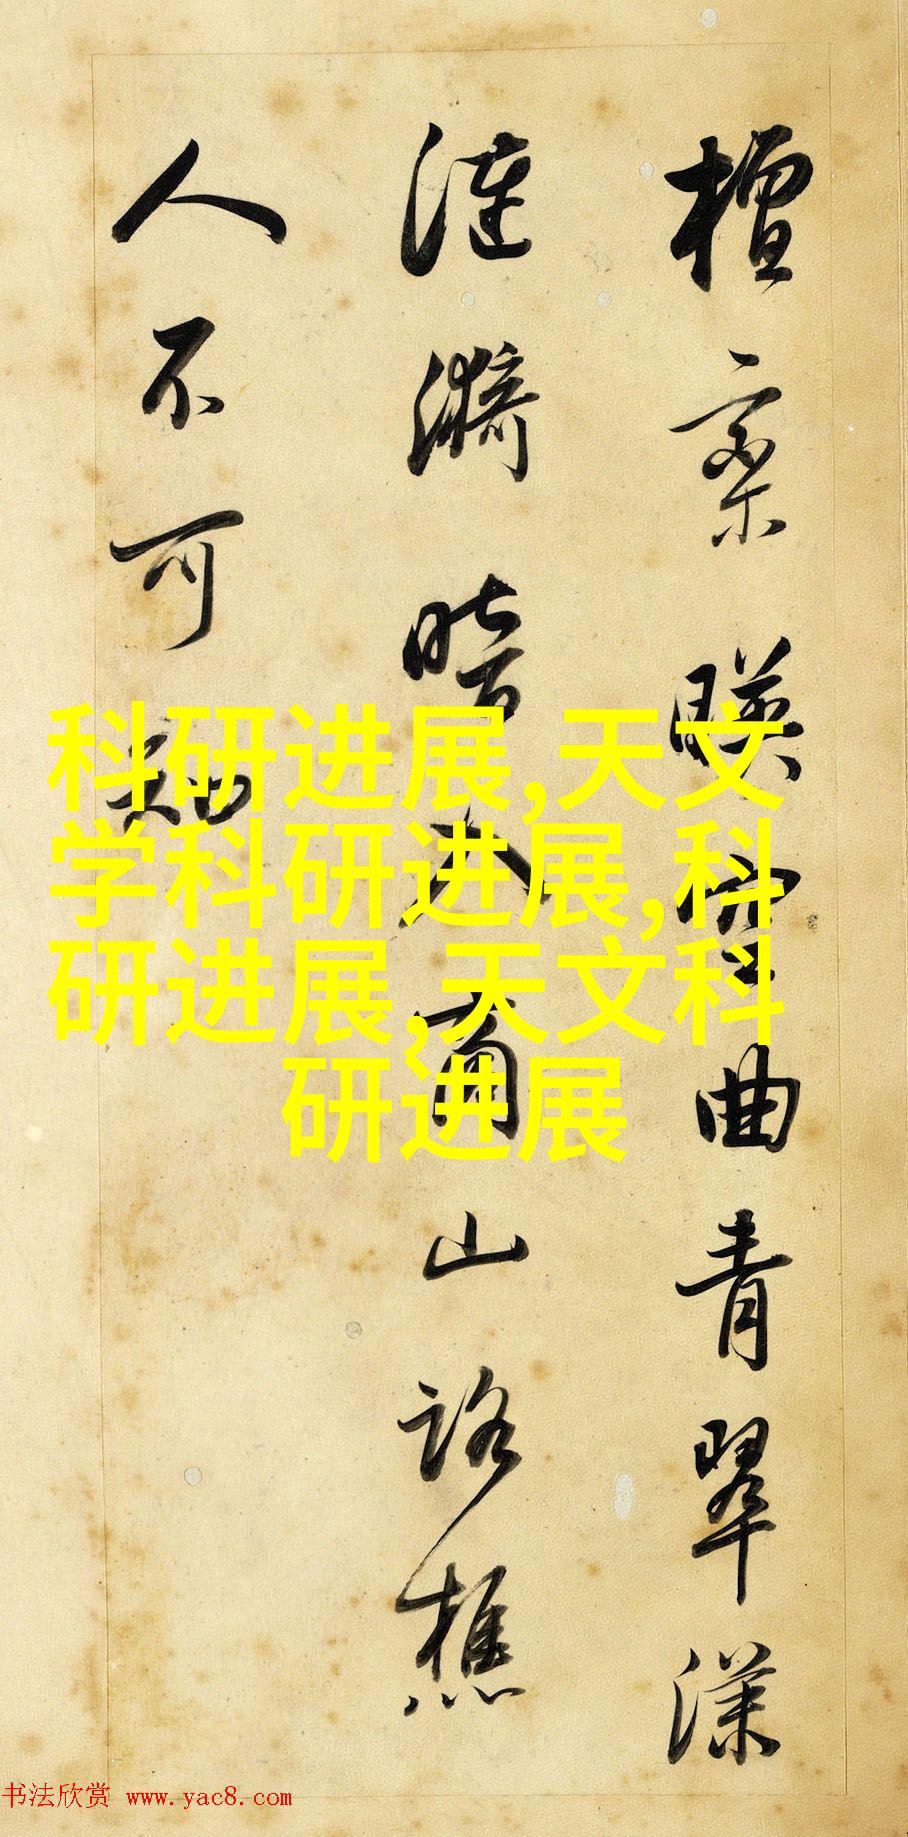 檀欒暎空曲青翠漾
漣漪暗入商山路樵
人不可知
科研进展,天文
学科研进展,科
研进展,天文科
研进展
书法欣赏 www.yac8.com